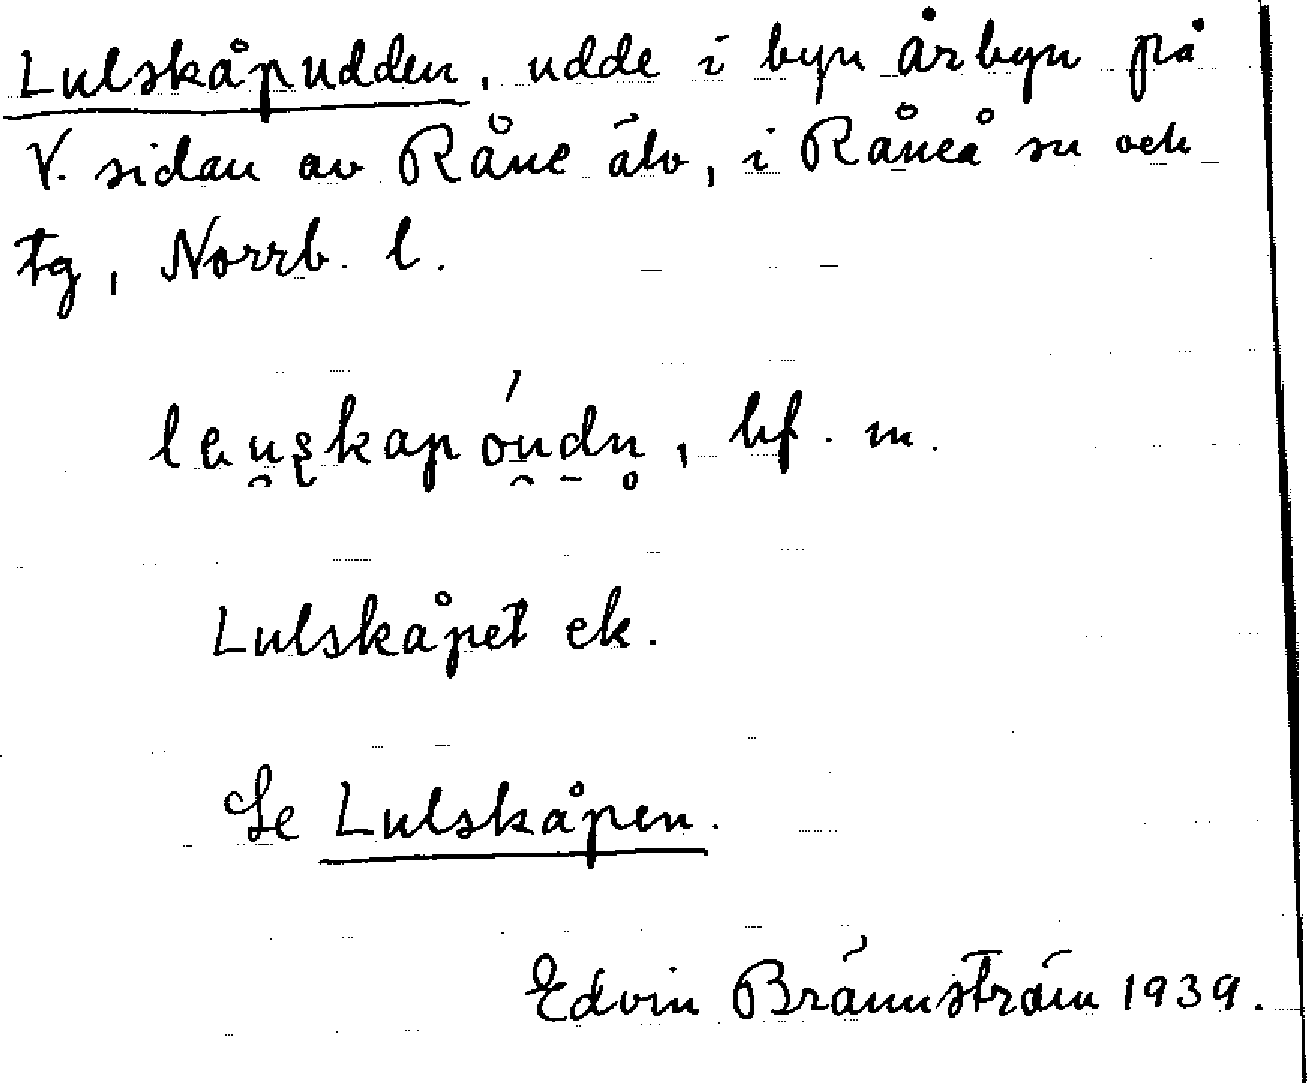 Lulskåpudden, udde i byn Årbyn på
V. sidan av Råne älv, i Råneå sn och
tg, Norrb. l.
, bf. m.
Lulskåpet ek.
Se Lulskåpen.
Edvin Brännström 1939.